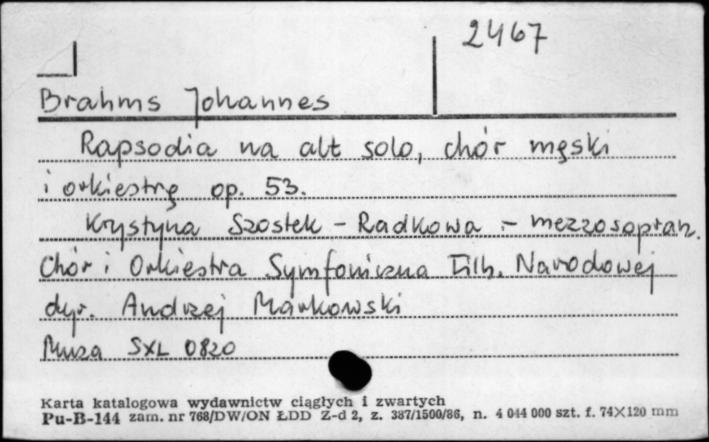 2467
Brahms Johannes
Rapsodia na alt solo, chór męski
i orkiestrę op. 53.
Krystyna Szostek-Radkowa - mezzosopran.
Chór i Orkiestra Symfoniczna Filh. Narodowej
dyr. Andrzej Markowski
Muza SXL 0820
Karta katalogowa wydawnictw ciągłych i zwartych
Pu-B-144 zam. nr 768/DW/ON ŁDD Z-d 2, z. 387/1500/86, n. 4 044 000 szt. f. 74×120 mm